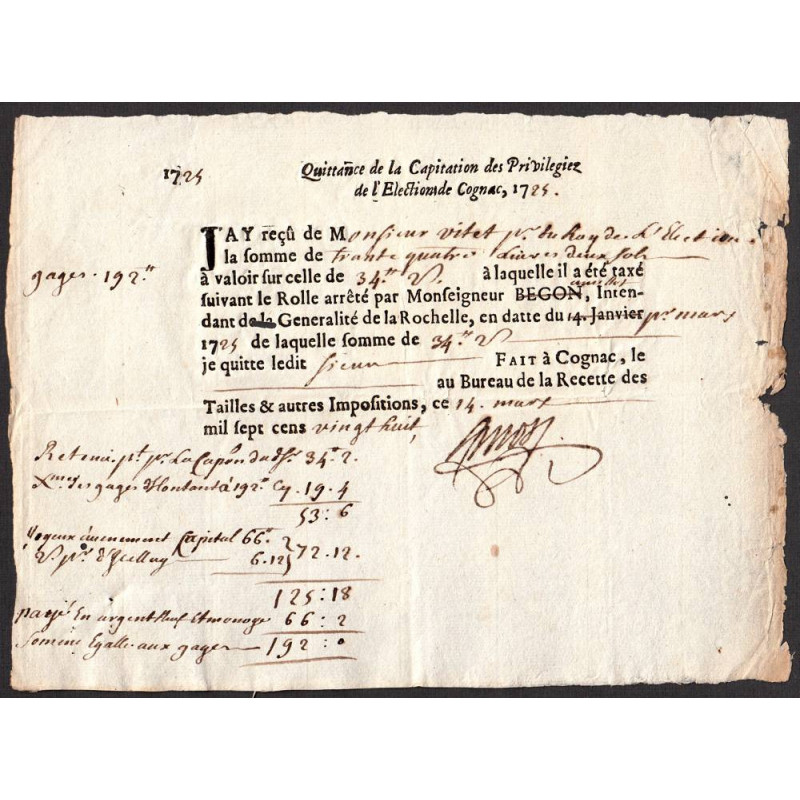 1725
Quittance de la Capitation des Privilegiez
de l'Election de Cognac, 1725.
J'AY reçû de Monsieur vitet pr. du Roy de L'Election
la somme de trante quatre Livres deux sols
gages. 192tt
à valoir sur celle de 34tt 2s à laquelle il a été taxé
suivant le Rolle arrêté par Monseigneur BEGON, Inten-
dant de la Generalité de la Rochelle, en datte du 14. Janvier pr. mars
1725 de laquelle somme de 34tt 2s
je quitte ledit sieur FAIT à Cognac, le
au Bureau de la Recette des
Tailles & autres Impositions, ce 14. mars
mil sept cens vingt huit
Retenu pt. pr. La Capon dud. sr. 34tt. 2.
des gages montant à 192tt cy. 19. 4
53: 6
Joyeux avenement Capital 66tt
6.12 72.12.
125:18
payé En argent 66:2
Somme Egalle aux gages 192:0